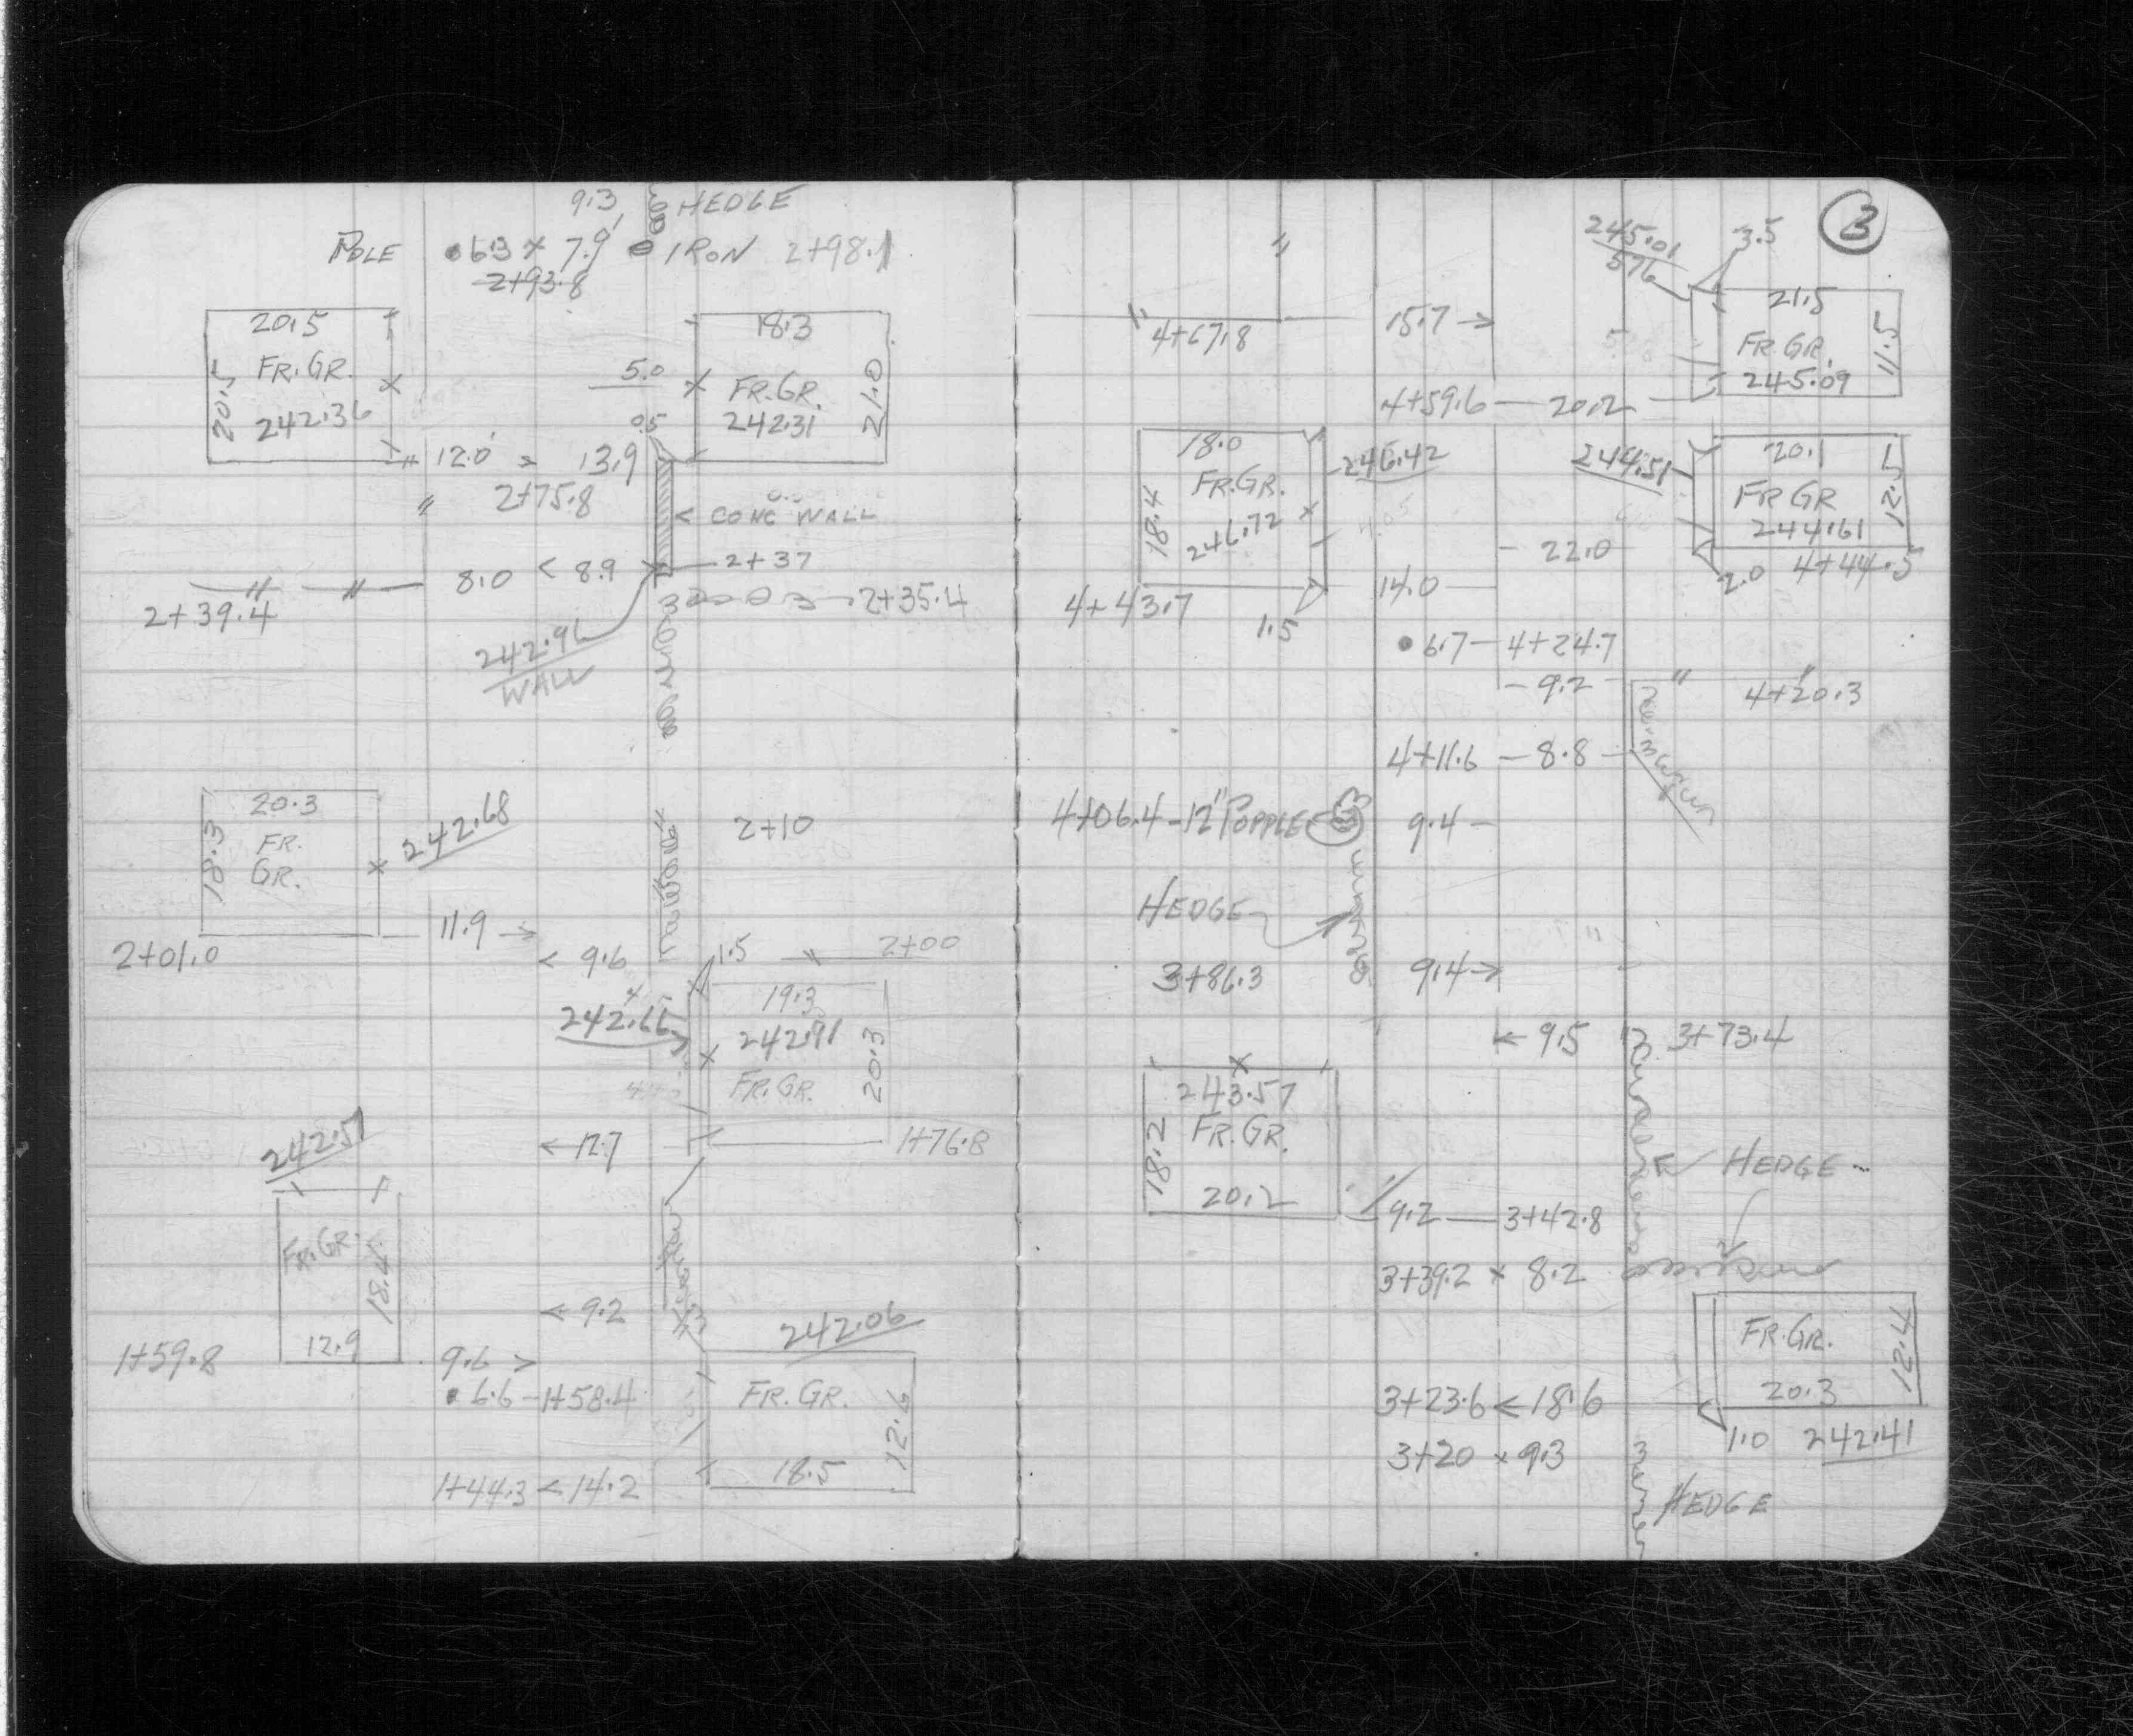 9.3 HEDGE
POLE 6.3 x 7.9 IRON 2+98.1
2+93.8
20.5
FR. GR.
20.5
242.36
18.3
5.0
FR. GR.
242.31
21.0
0.5
12.0 > 13.9
" 2+75.8
< CONC WALL
8.0 < 8.9
2+37
2+39.4
2+35.4
242.96
WALL
20.3
FR.
GR.
18.3
242.68
2+10
11.9 →
2+01.0
< 9.6
1.5
2+00
19.3
242.91
FR. GR.
20.3
← 12.7
1+76.8
242.51
FR. GR.
18.4
12.9
< 9.2
242.06
1+59.8
9.6 >
6.6 - 1+58.4
FR. GR.
12.6
18.5
1+44.3 < 14.2
3
245.01
576
3.5
4+67.8
15.7 →
21.5
FR. GR.
245.09
11.5
4+59.6 — 20.2
18.0
FR. GR.
246.72
18.4
246.42
244.51
20.1
FR GR
244.61
12.5
22.0
2.0 4+44.5
14.0
4+43.7
1.5
6.7 - 4+24.7
- 9.2
" 4+20.3
4+11.6 - 8.8
4+06.4 - 12" POPPLE
9.4 -
HEDGE
3+86.3
9.4 →
← 9.5
3+73.4
243.57
FR. GR.
18.2
20.2
HEDGE
9.2 — 3+42.8
3+39.2 x 8.2
FR. GR.
20.3
12.4
3+23.6 ← 18.6
1.0 242.41
3+20 x 9.3
HEDGE